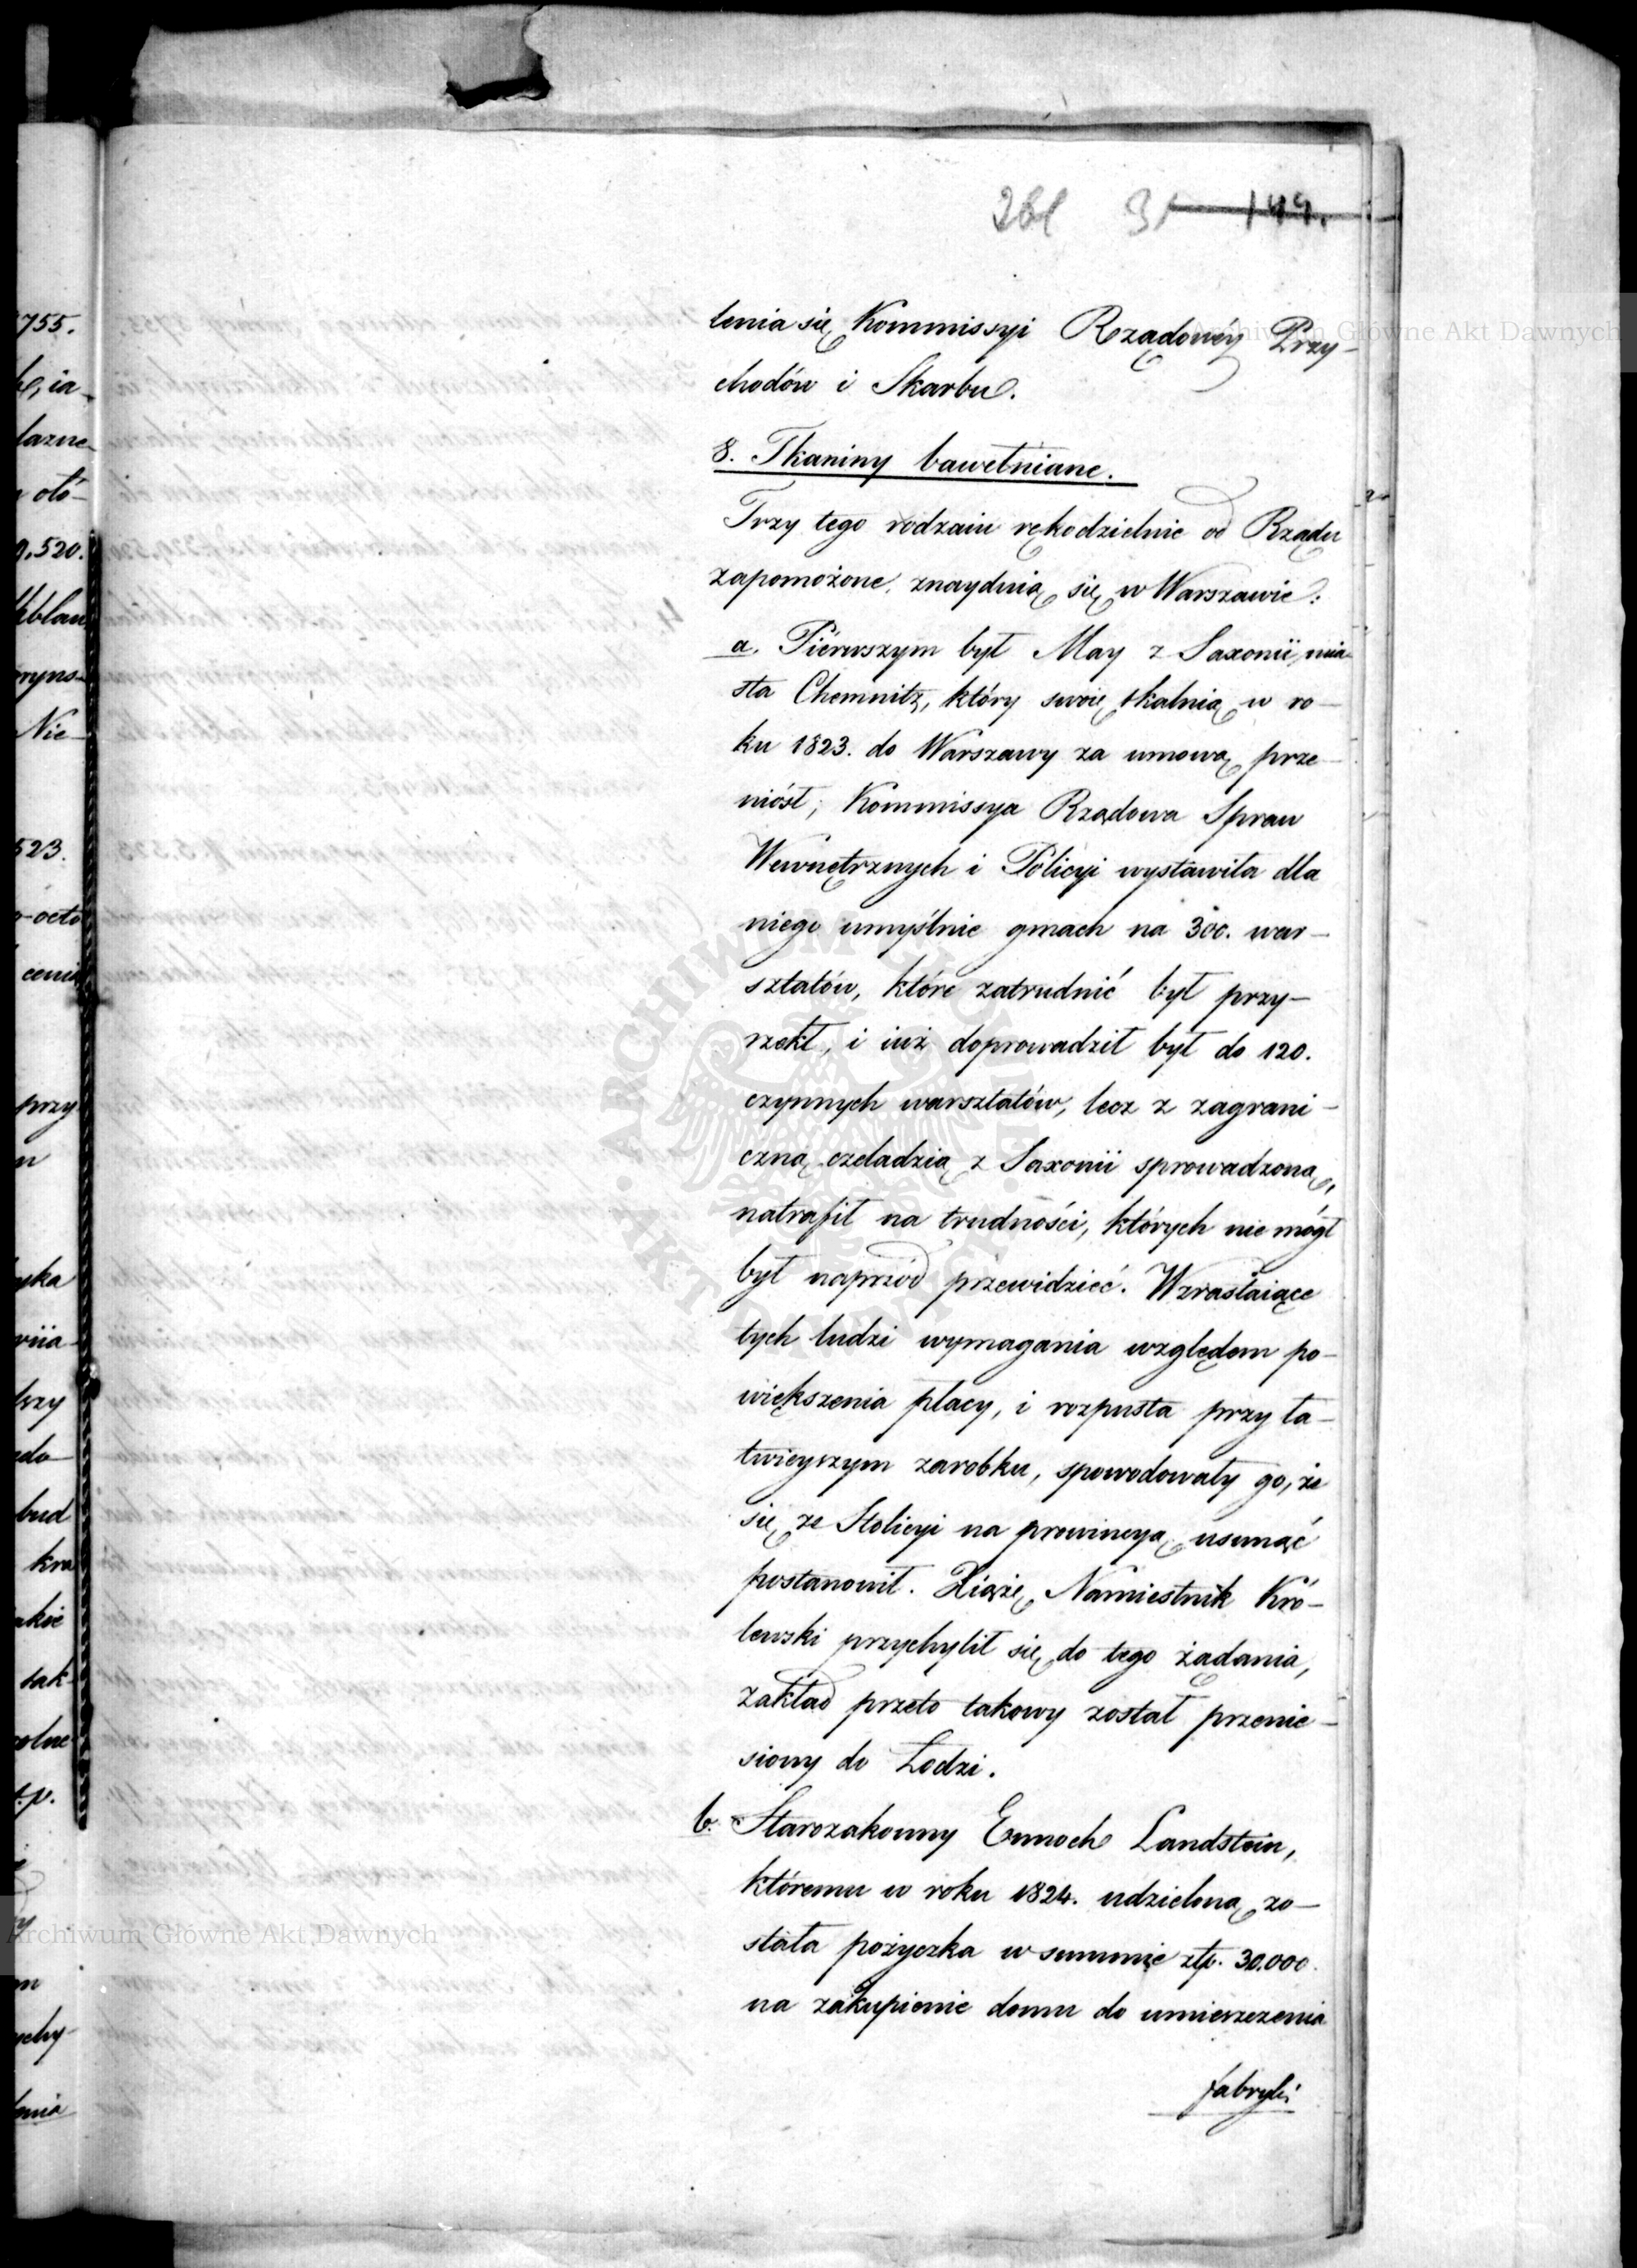 261 31 149.
lenia się Kommissyi Rządowéy Przy-
chodów i Skarbu.
8. Tkaniny bawełniane.
Trzy tego rodzaiu rękodzielnie od Rządu
zapomożone, znayduią się w Warszawie:
a. Piérwszym był May z Saxonii, mia-
sta Chemnitz, który swoię tkalnią w ro-
ku 1823. do Warszawy za umową prze-
niósł; Kommissya Rządowa Spraw
Wewnętrznych i Policyi wystawiła dla
niego umyślnie gmach na 300. war-
sztatów, które zatrudnić był przy-
rzekł, i iuż doprowadził był do 120.
czynnych warsztatów, lecz z zagrani-
czną czeladzią z Saxonii sprowadzoną,
natrafił na trudności, których nie mógł
był naprzód przewidzieć. Wzrastaiące
tych ludzi wymagania względem po-
większenia płacy, i rozpusta przy ła-
twieyszym zarobku, spowodowały go, że
się ze Stolicyi na prowincyą usunąć
postanowił. Xiąże Namiestnik Kró-
lewski przychylił się do tego żądania,
zakład przeto takowy został przenie-
siony do Łodzi.
b. Starozakonny Ennoch Landstein,
któremu w roku 1824. udzieloną zo-
stała pożyczka w summie złp. 30.000.
na zakupienie domu do umieszczenia
fabryki
755.
ia-
łazne-
oło-
520.
Nie-
523.
przy
bud
kra
sak-
Archiwum Główne Akt Dawnych
Archiwum Główne Akt Dawnych